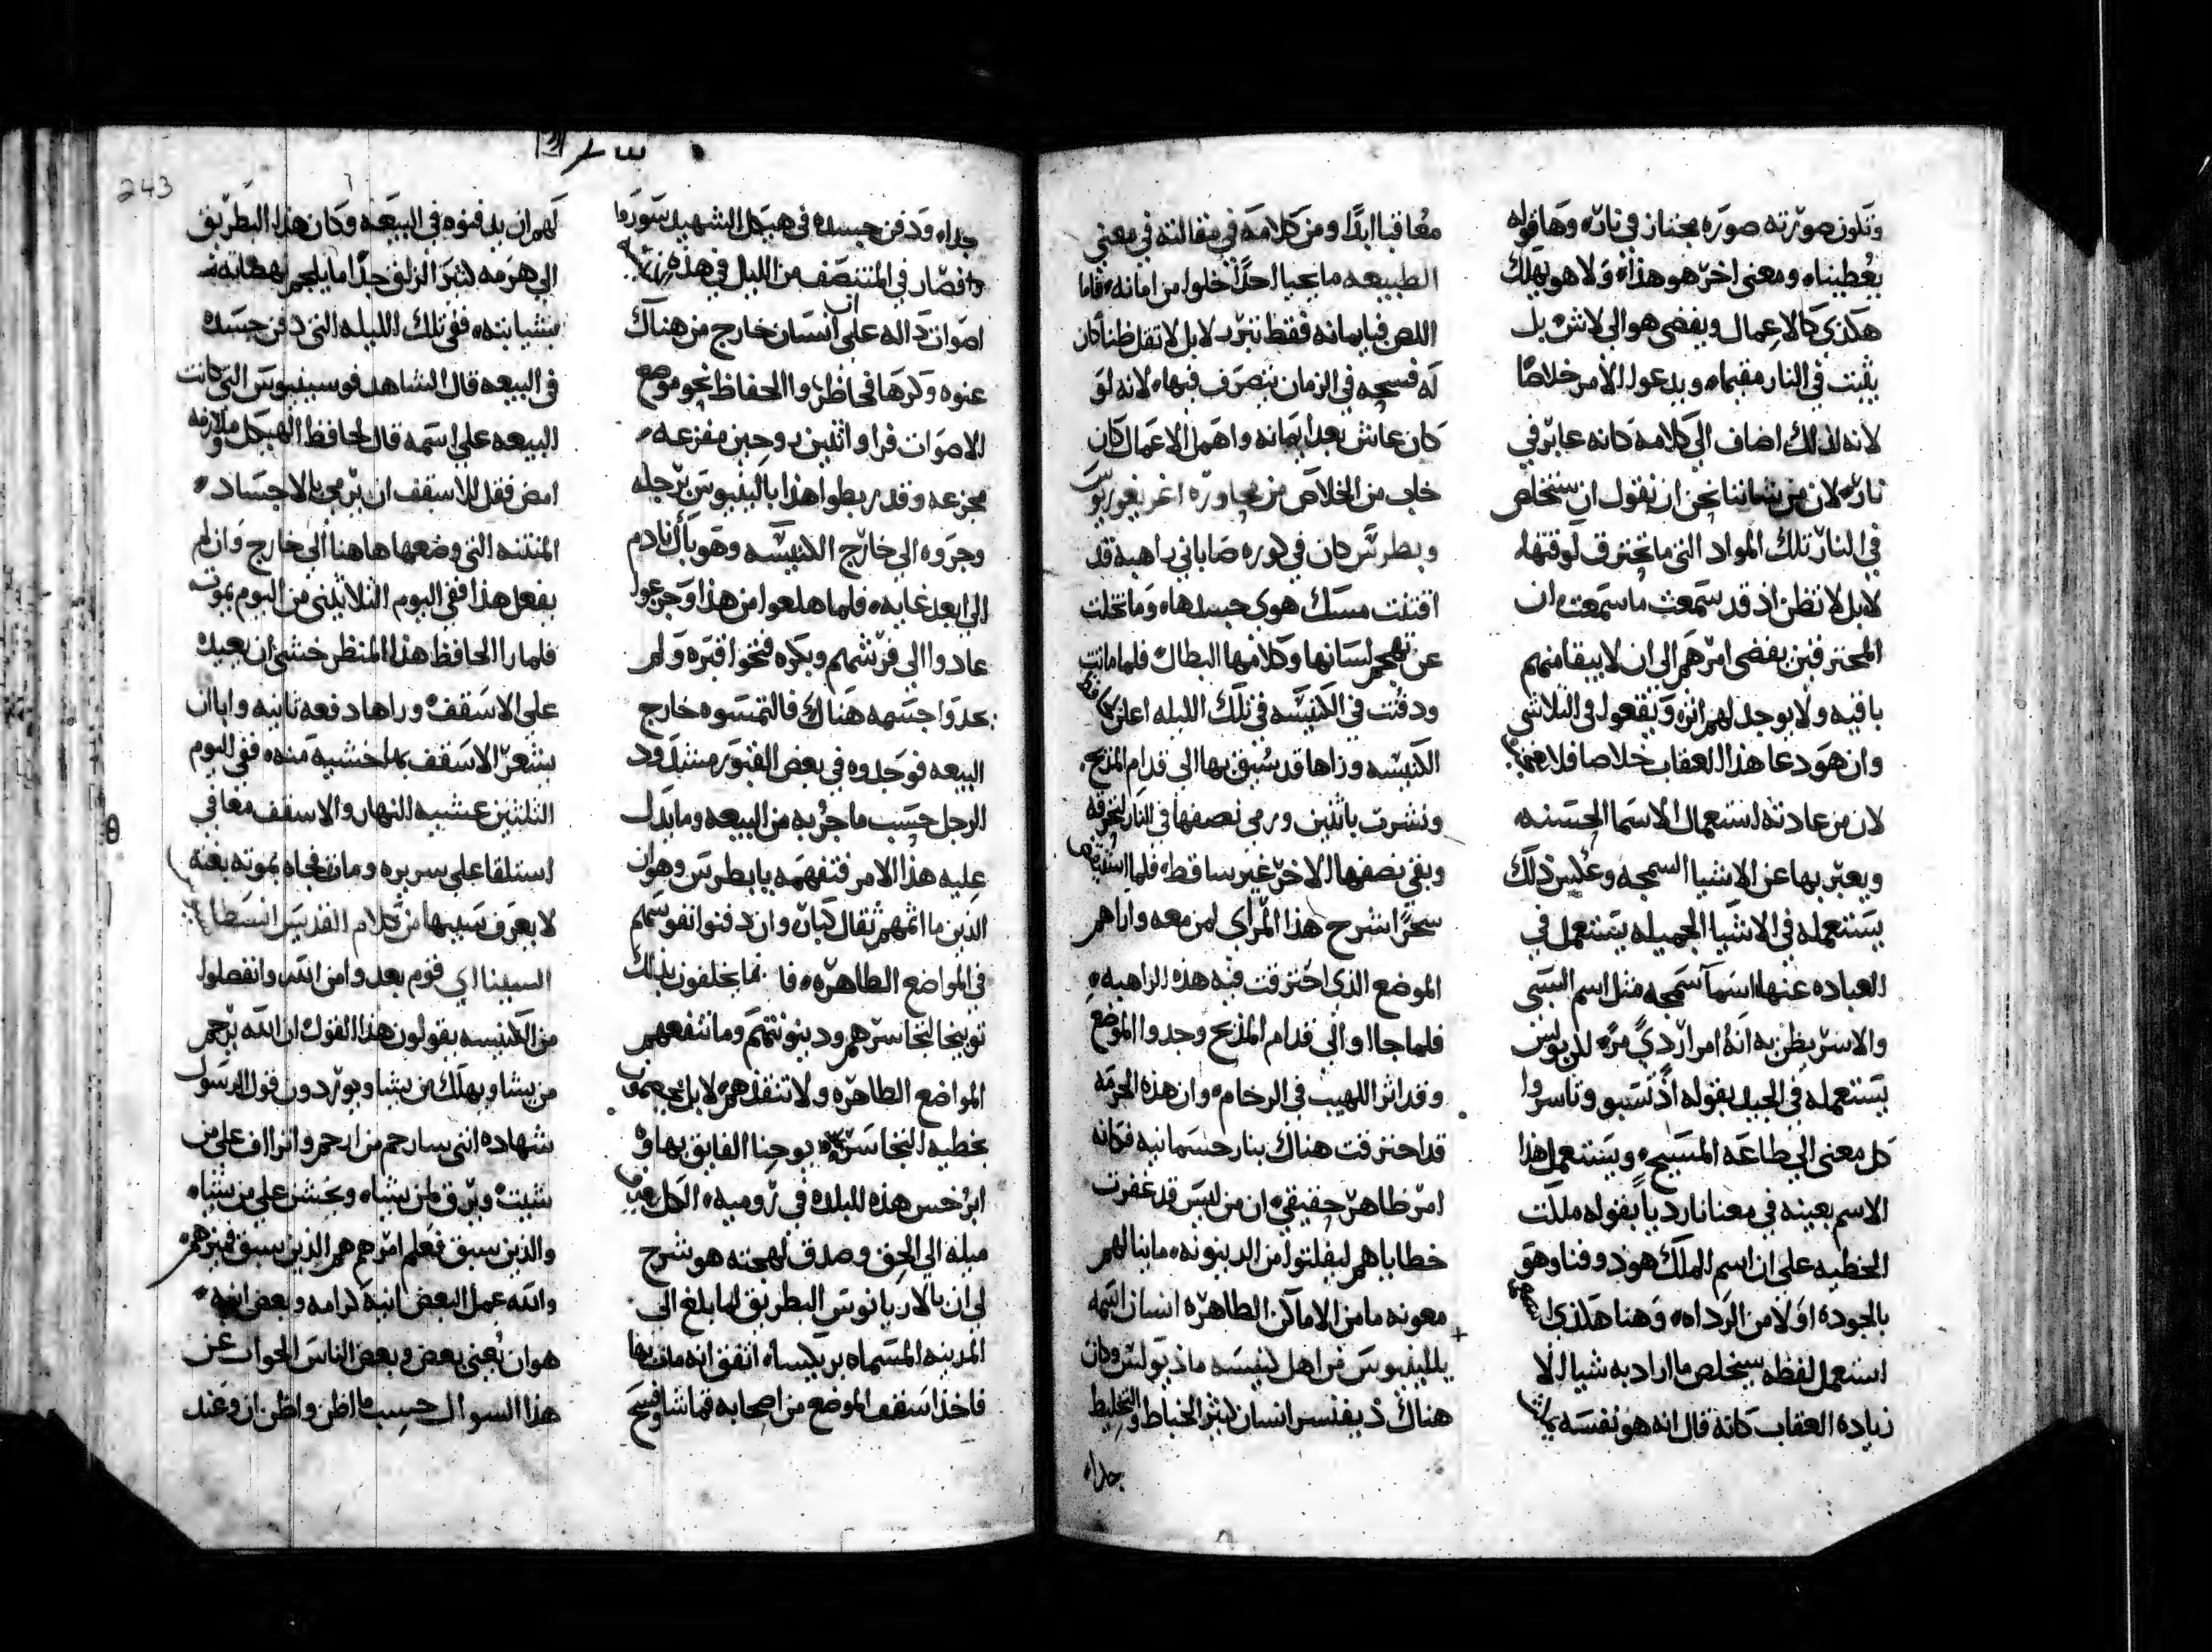 وتكون صورته صوره مجتاز في نار، وها قوله
يعطيناه ومعنى اخر هو هذا، ولا هو يهلك
هكذي كالاعمال ويفضي هو الى لاشى بل
يثبت في النار مقيما، ويدعوا الامر خلاصا
لانه لذلك اضاف الي كلامه كانه عابر في
نار، لان من شاننا نحن ان نقول ان ستخلص
في النار تلك المواد التي ما تحترق لوقتها،
لابل لا تظن اذ قد سمعت ما سمعت ان
المحترقين يفضي امرهم الى ان لا يبقا منهم
باقيه ولا يوجد لهم اثره ويقعوا في التلاشي
وان هو دعا هذا العقاب خلاصا فلا
لان من عادته استعمال الاسما الحسنه
ويعبر بها عن الاشيا السمجه وعكس ذلك
يستعمله في الاشيا الجميله يستعمل في
العباده عنها اسما سمجه مثل اسم السبي
والاسر يظن به انه امرا ردي مره لن بولس
يستعمله في الجيد بقوله اذ نسبو وناسروا
كل معنى الي طاعه المسيح، ويستعمل هذا
الاسم بعينه في معنا نار ديا بقوله ملكت
الخطيه على ان اسم الملك هو ذو فنا وهو
بالجوده اولا من الرداه، وهنا هكذي
استعمل لفظه سيخلص ما اراد به شيا الا
زياده العقاب كانه قال انه هو نفسه
معاقبا ابدا ومن كلامه في مقالته في معنى
الطبيعه ما يحيا احدا خلوا من امانه، فاما
اللص فبايمانه فقط تبرر لابل لا تقل ظنا كان
له فسحه في الزمان يتصرف فيها، لانه لو
كان عاش بعد ايمانه واهمل الاعمال كان
خاب من الخلاص من محاوره اغريغوريوس
وبطرس كان في كوره صاباني راهبه قد
اقتنت مسك هوى جسدها، وما تخلت
عن تهجم لسانها وكلامها البطال فلما ماتت
ودفنت في الكنيسه في تلك الليله اعلن
الكنيسه وراها قد سبق بها الى قدام المذبح،
ونشرت باثنين ورمي نصفها في النار لحرقه
وبقي نصفها الاخر غير ساقط، فلما
سحرا شرح هذا المراي لمن معه واراهم
الموضع الذي احترقت فيه هذه الراهبه،
فلما جااوا الى قدام المذبح وجدوا الموضع
وقد اثر اللهيب في الرخام، وان هذه الحرمه
قد احترقت هناك بنار جسمانيه فكانه
امر ظاهر حقيقي، ان من ليس قد غفرت
خطاياهم ليفلتوا من الدينونه، ما ينالهم
معونه ما من الاماكن الطاهره انسان اسمه
بالينيوس من اهل كنيسه ماذيولنس وكان
هناك ذيفنسر انسان كثير الخباط والتخليط
جدا،
جدا، ودفن جسده في هيكل الشهيد سوروا
فصار في المنتصف من الليل في هذه
اصوات داله على ان انسان خارج من هناك
عنوه وكرها فحاظروا الحفاظ نحو موضع
الاصوات فراوا اثنين روحين مفزعه،
مجزعه وقد ربطوا هذا بالينيوس برجله
وجروه الى خارج الكنيسه وهو بال نادم
الى ابعد غايه، فلما هلعوا من هذا وجزعوا
عادوا الى فرشهم وبكره فتحوا قبره ولم
يجدوا جسمه هناك فالتمسوه خارج
البيعه فوجدوه في بعض القبور مشدود
الرجل حسب ما جر به من البيعه وما يدل
عليه هذا الامر فتفهمه يا بطرس وهو ان
الذين ما اثمهم ثقال كبار، وان دفنوا نفوسهم
في المواضع الطاهره، فانما يخلفون بذلك
توبيخا لتجاسرهم ودينونتهم وما تنفعهم
المواضع الطاهره ولا تنقذهم لا بل تخصمهم
بخطيه التجاسر، يوحنا الفايق بها وه
ابرخس هذه البلاده في روميه، الكل
ميله الي الحق وصدق لهجته هو شرح
لي ان بالاريانوس البطريق لما بلغ الى
المدينه المسماه بريكساه اتفق انه مات بها
فاخذ اسقف الموضع من اصحابه قماشا وفسح
243
لهم ان يدفنوه في البيعه وكان هذا البطريق
الي هرمه كثير الزلق جدا ما يلجم
بشبابته، ففي تلك الليله التي دفن جسده
في البيعه قال الشاهد فوسينيوس التي كانت
البيعه على اسمه قال لحافظ الهيكل وملازمه
امض فقل للاسقف ان يرمي بالاجساد
المنتنه التي وضعها هاهنا الى خارج وان لم
يفعل هذا ففي اليوم الثلاثيني من اليوم يموت
فلما را الحافظ هذا المنظر خشي ان يعيده
على الاسقف، وراها دفعه ثانيه وابا ان
يشعر الاسقف بها خشيه منه، ففي اليوم
الثلثين عشيه النهار والاسقف معافي
استلقا على سريره ومات فجاه بموته بغته
لا يعرف سببها من كلام القديس انسطاس
السينا اي قوم بعدوا من الله وانفصلوا
من الكنيسه يقولون هذا القول ان الله يرحم
من يشا ويهلك من يشا ويوردون قول الرسول
شهاده انني سارحم من ارحم واتراف على من
شيت ويرق لمن يشا، ويخشن على من يشا،
والذين سبق فعلم امرهم هم الذين سبق فميزهم
والله عمل البعض انيه كرامه وبعض انيه
هوان يعني بعض وبعض الناس الجواب عن
هذا السوال حسب ما اظن واظن ان وعند